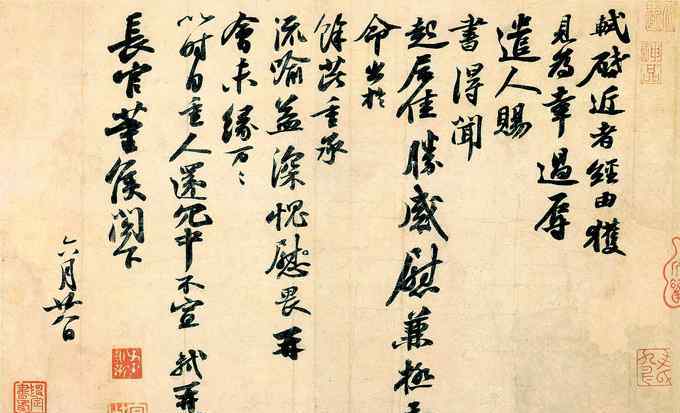 軾啓近者經由獲
見為幸過辱
遣人賜
書得聞
起居佳勝感慰兼極
命出於
餘芘重承
流喻益深愧慰畏再
會未緣万〻
以時自重人還冗中不宣 軾再
長官董侯閣下
六月廿八日